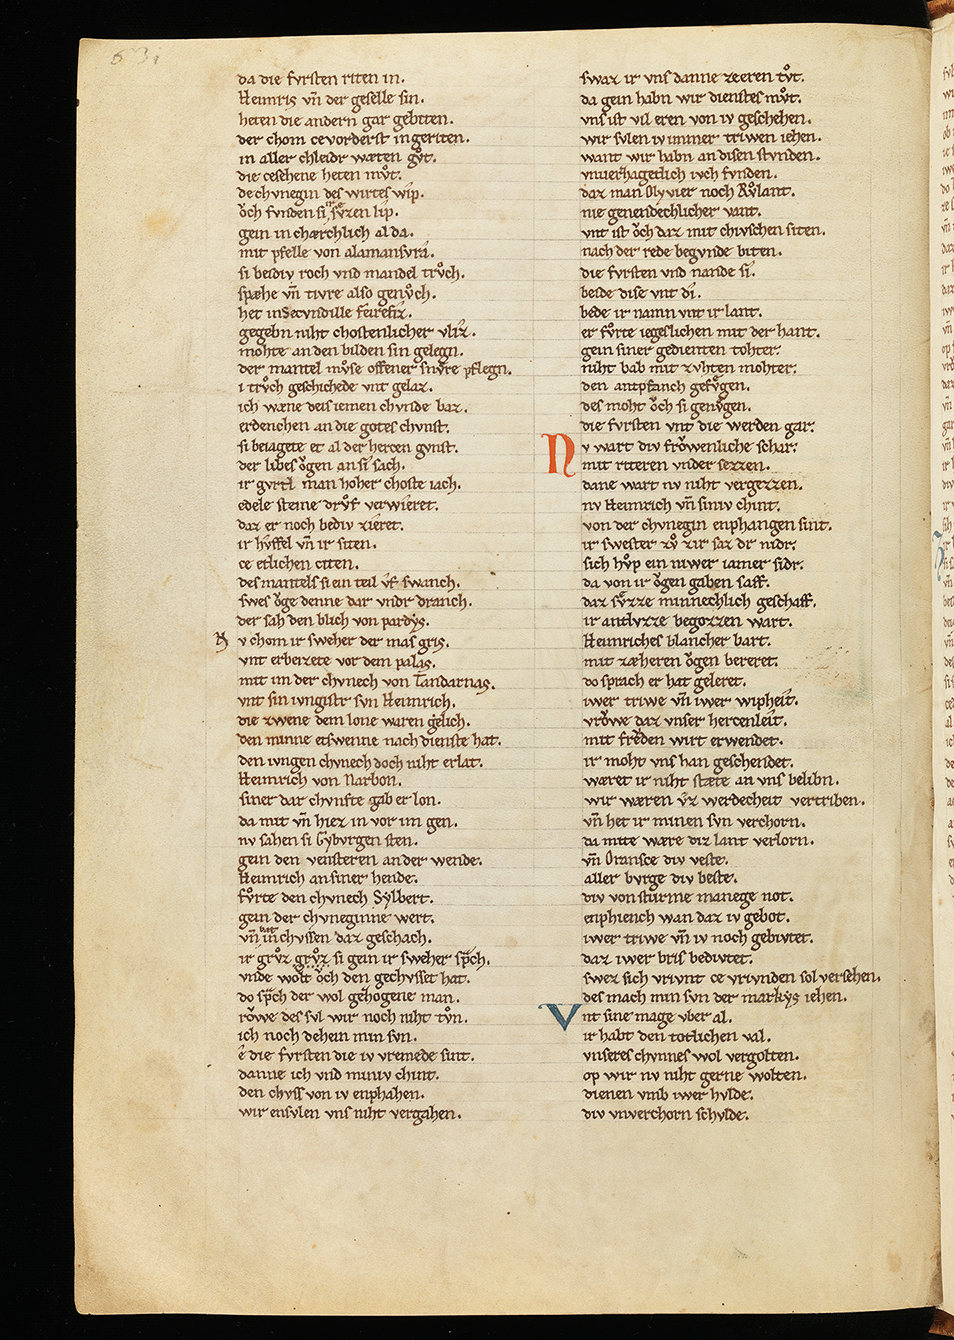 da die fvrsten riten in.
Heimris vn̄ der geselle sin.
heten die andern gar gebiten.
der chom ce vorderst in geriten.
in aller chleidr wæten gv̊t.
die cesehene heten mv̊t.
de chvnegin des wirtes wip.
ǒch fvnden si ir sv̊zen lip.
gein in chærchlich al da.
mit pfelle von alamansvra.
si beidiv roch vnd mandel trv̊ch.
spæhe vn̄ tivre also genv̊ch.
het in Secvndille feirefiz.
gegebn niht chostenlicher vliz.
mohte an den bilden sin gelegn.
der mantel mv̊se offener snv̊re pflegn.
i trv̊ch geschichede vnt gelaz.
ich wæne deis iemen chvnde baz.
erdenchen an die gotes chvnst.
si beiagete et al der hercen gvnst.
der libes ǒgen an si sach.
ir gvrtl man hoher choste iach.
edele steine drv̊f verwieret.
daz er noch bediv zieret.
ir hv̊ffel vn̄ ir siten.
ce etlichen citen.
des mantels si ein teil v̊f swanch.
swes ǒge denne dar vndr dranch.
der sah den blich von pardys.
N v chom ir sweher der mas gris.
vnt erbeizete vor dem palas.
mit im der chvnech von Tandarnas.
vnt sin ivngistr svn Heimrich.
die zwene dem lone waren gelich.
den minne etswenne nach dienste hat.
den ivngen chvnech doch niht erlat.
Heimrich von Narbon.
siner dar chvnfte gab er lon.
da mit vn̄ hiez in vor im gen.
nv sahen si Gybvrgen sten.
gein den vensteren an der wende.
Heimrich an siner hende.
fv̊rte den chvnech Sylbert.
gein der chvneginne wert.
vn̄ bat in chvssen daz geschach.
ir grv̊z grv̊z si gein ir sweher sp̄ch.
vnde wolt ǒch den gechvsset hat.
do sp̄ch der wol gezogene man.
rǒwe des svl wir noch niht tv̊n.
ich noch dehein min svn.
e die fvrsten die iv vremede sint.
danne ich vnd miniv chint.
den chvss von iv enphahen.
wir ensvlen vns niht vergahen.
swaz ir vns danne zeeren tv̊t.
da gein habn wir dienstes mv̊t.
vns ist vil eren von iv geschehen.
wir svlen iv immer triwen iehen.
want wir habn an disen stvnden.
vnverzhagetlich ivch fvnden.
daz man Olyvier noch Rv̊lant.
nie genendechlicher vant.
vnt ist ǒch daz mit chivschen siten.
nach der rede begvnde biten.
die fvrsten vnd nande si.
beide dise vnt di.
bede ir namn vnt ir lant.
er fv̊rte iegeslichen mit der hant.
gein siner gedienten tohter.
niht bab mit zvhten mohter.
den antpfanch gefv̊gen.
des moht ǒch si genv̊gen.
die fvrsten vnt die werden gar.
N v wart div frǒwenliche schar.
mit riteren vnder sezzen.
dane wart nv niht vergezzen.
nv Heimrich vn̄ siniv chint.
von der chvnegin enphangen sint.
ir swester zv̊ zir saz dr nidr.
sich hv̊p ein niwer iamer sidr.
da von ir ǒgen gaben saff.
daz sv̊zze minnechlich geschaff.
ir antlvzze begozzen wart.
Heimriches blancher bart.
mit zæheren ǒgen bereret.
do sprach er hat geleret.
iwer triwe vn̄ iwer wipheit.
vrǒwe daz vnser hercenleit.
mit frǒden wirt erwendet.
ir moht vns han geschendet.
wæret ir niht stæte an vns belibn.
wir wæren v̊z werdecheit vertriben.
vn̄ het ir minen svn verchorn.
da mite wære diz lant verlorn.
vn̄ Oransce div veste.
aller bvrge div beste.
div von stvrme manege not.
enphiench wan daz iv gebot.
iwer triwe vn̄ iv noch gebivtet.
daz iwer bris bedivtet.
swez sich vrivnt ce vrivnden sol versehen.
des mach min svn der markys iehen.
V nt sine mage vber al.
ir habt den totlichen val.
vnseres chvnnes wol vergolten.
op wir nv niht gerne wolten.
dienen vmb iwer hvlde.
div vnverchorn schvlde.